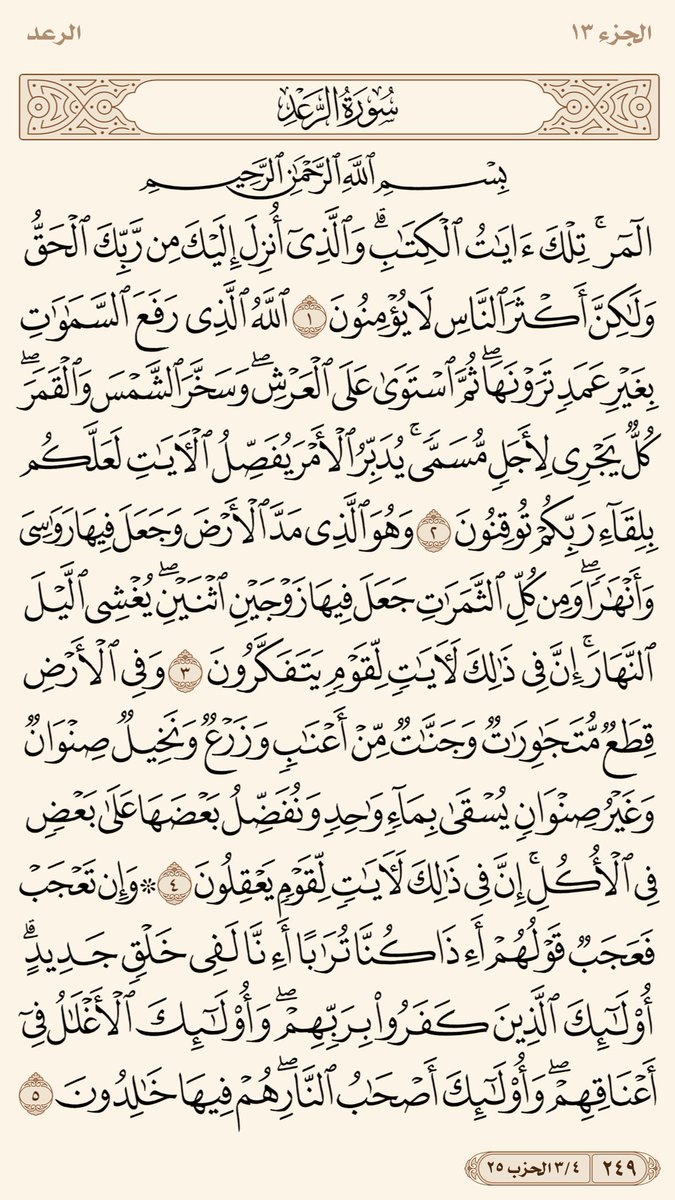 الجزء ١٣
الرعد
سُورَةُ الرَّعْدِ
بِسْمِ ٱللَّهِ ٱلرَّحْمَٰنِ ٱلرَّحِيمِ
الٓمٓرۚ تِلْكَ ءَايَٰتُ ٱلْكِتَٰبِۗ وَٱلَّذِىٓ أُنزِلَ إِلَيْكَ مِن رَّبِّكَ ٱلْحَقُّ
وَلَٰكِنَّ أَكْثَرَ ٱلنَّاسِ لَا يُؤْمِنُونَ ١ ٱللَّهُ ٱلَّذِى رَفَعَ ٱلسَّمَٰوَٰتِ
بِغَيْرِ عَمَدٍ تَرَوْنَهَاۖ ثُمَّ ٱسْتَوَىٰ عَلَى ٱلْعَرْشِۖ وَسَخَّرَ ٱلشَّمْسَ وَٱلْقَمَرَۖ
كُلٌّ يَجْرِى لِأَجَلٍ مُّسَمًّىۚ يُدَبِّرُ ٱلْأَمْرَ يُفَصِّلُ ٱلْءَايَٰتِ لَعَلَّكُم
بِلِقَآءِ رَبِّكُمْ تُوقِنُونَ ٢ وَهُوَ ٱلَّذِى مَدَّ ٱلْأَرْضَ وَجَعَلَ فِيهَا رَوَٰسِىَ
وَأَنْهَٰرًاۖ وَمِن كُلِّ ٱلثَّمَرَٰتِ جَعَلَ فِيهَا زَوْجَيْنِ ٱثْنَيْنِۖ يُغْشِى ٱلَّيْلَ
ٱلنَّهَارَۚ إِنَّ فِى ذَٰلِكَ لَءَايَٰتٍ لِّقَوْمٍ يَتَفَكَّرُونَ ٣ وَفِى ٱلْأَرْضِ
قِطَعٌ مُّتَجَٰوِرَٰتٌ وَجَنَّٰتٌ مِّنْ أَعْنَٰبٍ وَزَرْعٌ وَنَخِيلٌ صِنْوَانٌ
وَغَيْرُ صِنْوَانٍ يُسْقَىٰ بِمَآءٍ وَٰحِدٍ وَنُفَضِّلُ بَعْضَهَا عَلَىٰ بَعْضٍ
فِى ٱلْأُكُلِۚ إِنَّ فِى ذَٰلِكَ لَءَايَٰتٍ لِّقَوْمٍ يَعْقِلُونَ ٤ ۞ وَإِن تَعْجَبْ
فَعَجَبٌ قَوْلُهُمْ أَءِذَا كُنَّا تُرَٰبًا أَءِنَّا لَفِى خَلْقٍ جَدِيدٍۗ
أُو۟لَٰٓئِكَ ٱلَّذِينَ كَفَرُوا۟ بِرَبِّهِمْۖ وَأُو۟لَٰٓئِكَ ٱلْأَغْلَٰلُ فِىٓ
أَعْنَاقِهِمْۖ وَأُو۟لَٰٓئِكَ أَصْحَٰبُ ٱلنَّارِۖ هُمْ فِيهَا خَٰلِدُونَ ٥
٢٤٩
٣/٤ الحزب ٢٥